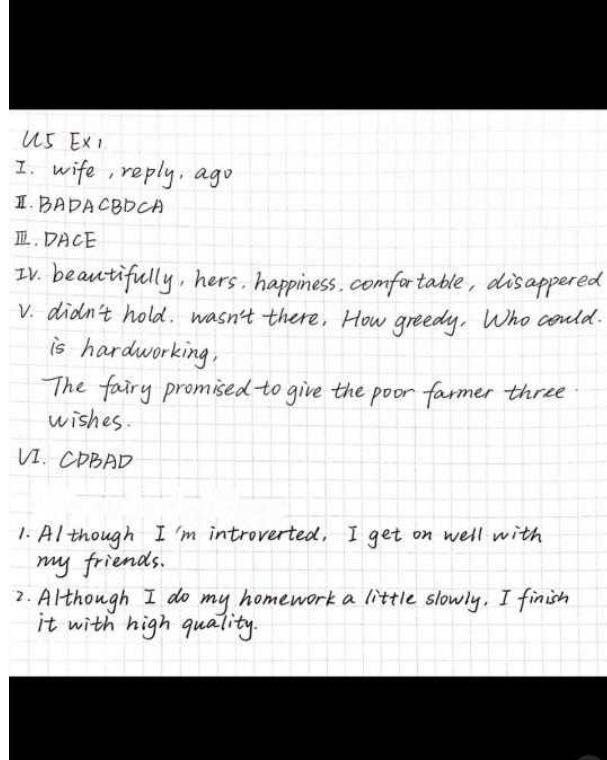 U5 Ex1
I. wife, reply, ago
II. BADACBDCA
III. DACE
IV. beautifully, hers. happiness. comfortable, disappered
V. didn't hold. wasn't there, How greedy. Who could.
is hardworking,
The fairy promised to give the poor farmer three
wishes.
VI. CDBAD
1. Although I'm introverted, I get on well with
my friends.
2. Although I do my homework a little slowly, I finish
it with high quality.